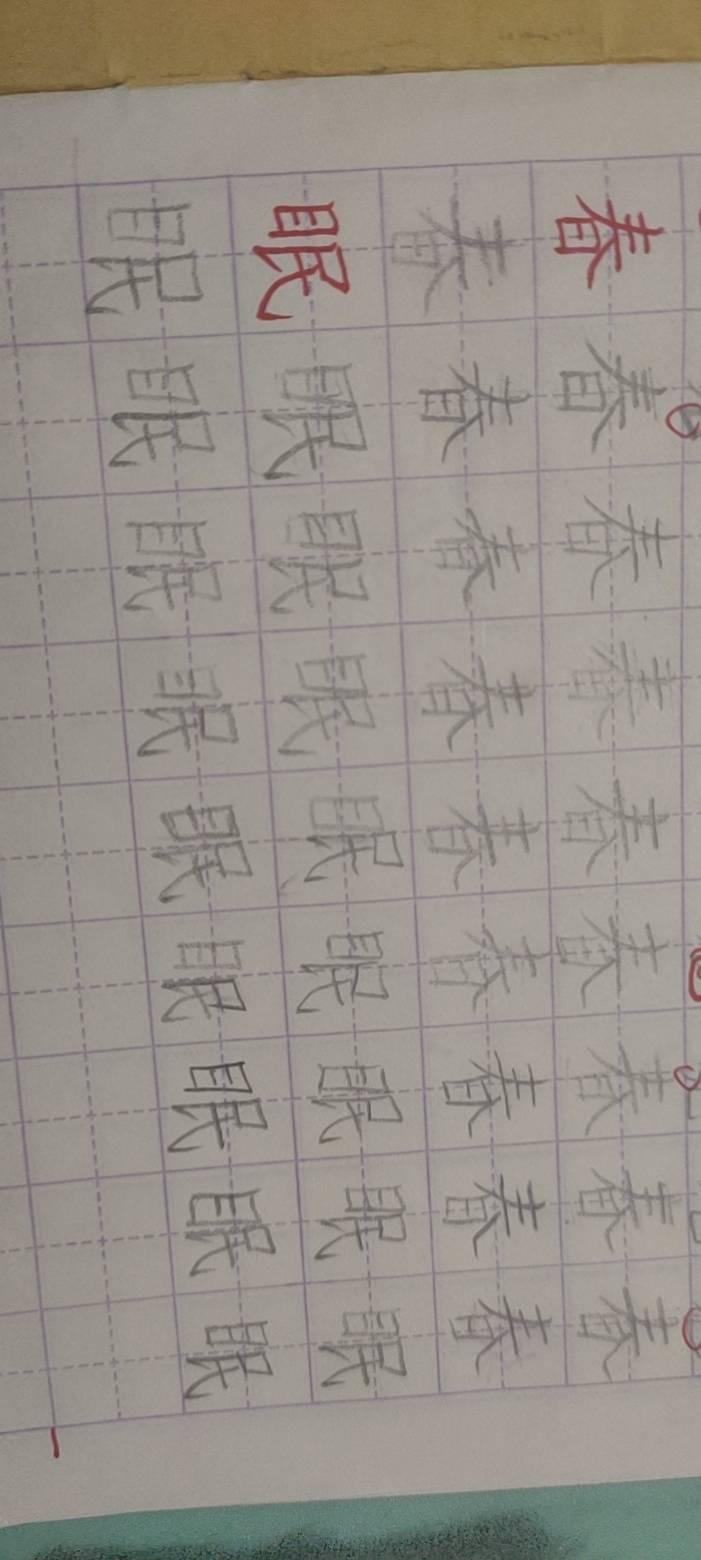 春春春春春春春春春
春春春春春春春春春
眠眠眠眠眠眠眠眠眠
眠眠眠眠眠眠眠眠眠